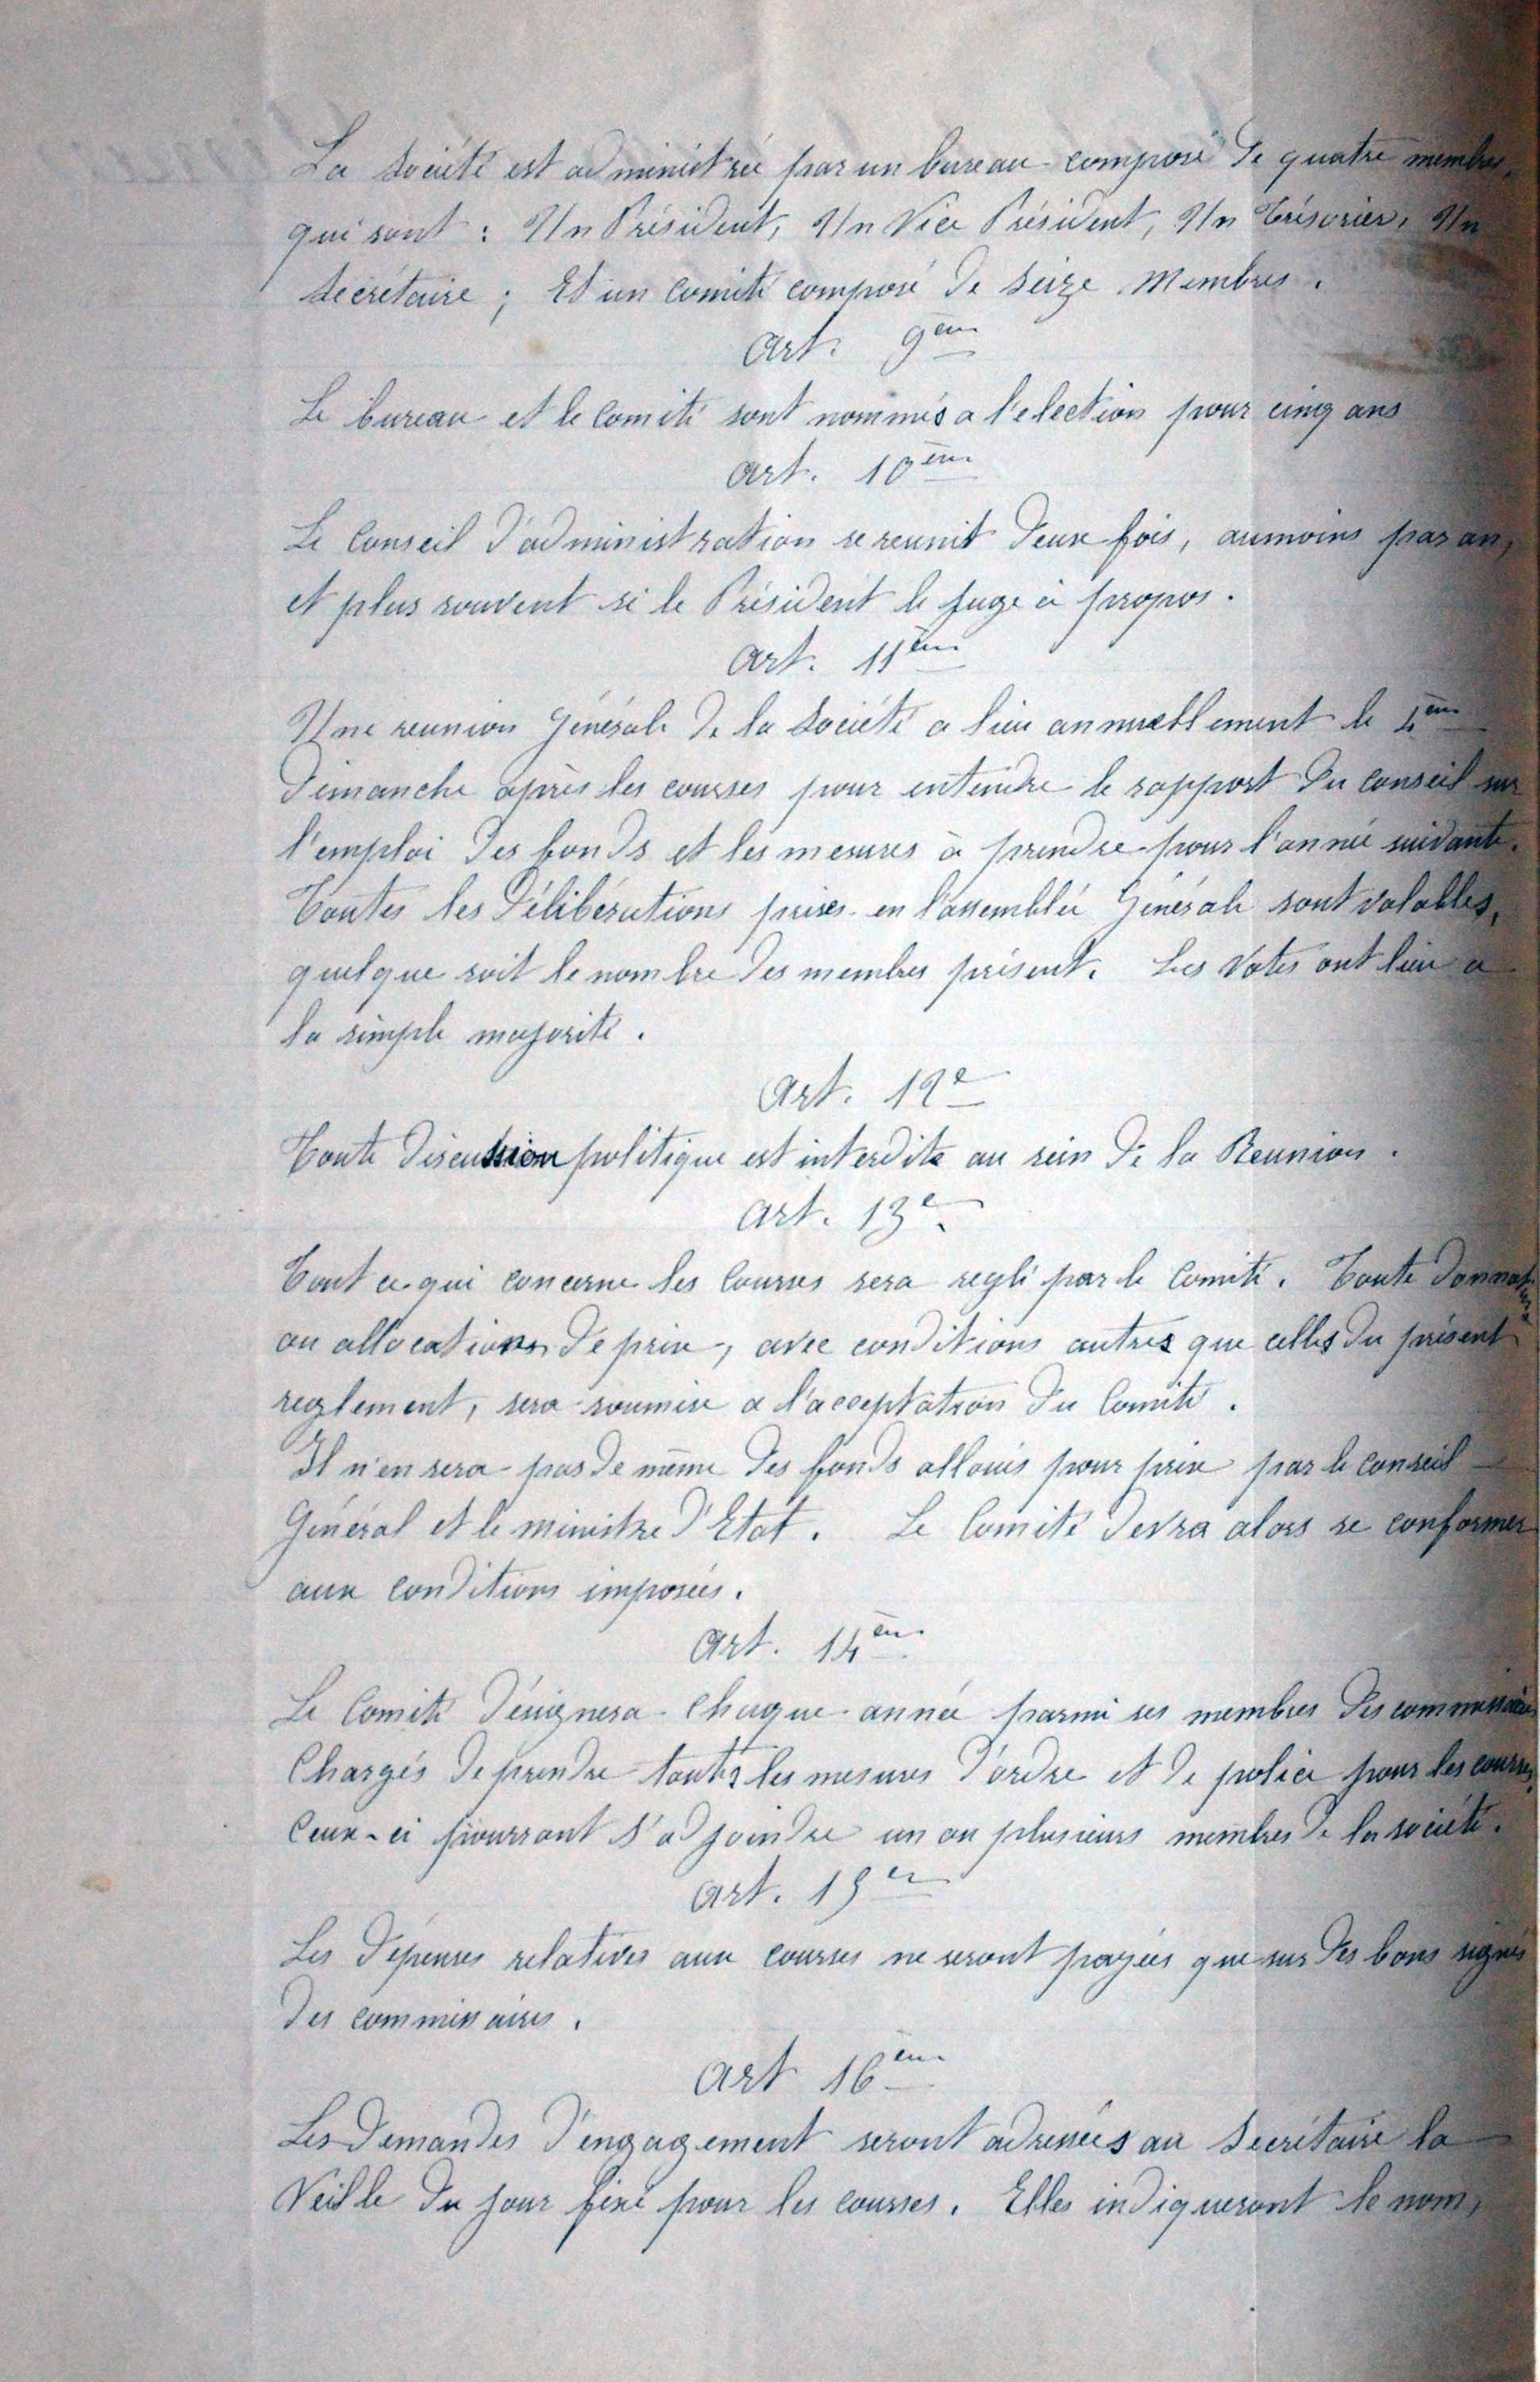 La Société est administrée par un bureau composé de quatre membres,
qui sont : Un Président, Un Vice Président, Un Trésorier, Un
Secrétaire ; Et un Comité composé de Seize Membres.
Art. 9ème
Le bureau et le Comité sont nommés a l'election pour cinq ans
Art. 10ème
Le Conseil d'administration se reunit deux fois, aumoins par an,
et plus souvent si le Président le juge à propos.
Art. 11ème
Une reunion Générale de la Société a lieu annuellement le 4ème
Dimanche après les courses pour entendre le rapport du conseil sur
l'emploi des fonds et les mesures à prendre pour l'année suivante.
Toutes les délibérations prises en l'assemblée Générale sont valables,
quelque soit le nombre des membres présent. Les Votes ont lieu a
la simple majorité.
Art. 12e
Toute discussion politique est interdite au sein de la Reunion.
Art. 13e
Tout ce qui concerne les Courses sera reglé par le Comité. Toute donnation
ou allocations de prix, avec conditions autres que celles du présent
reglement, sera soumise a l'acceptation du Comité.
Il n'en sera pas de même des fonds alloués pour prix par le conseil
Général et le ministre d'Etat. Le Comité devra alors se conformer
aux Conditions imposées.
Art. 14ème
Le Comité désignera chaque année parmi ses membres des commissaires
Chargés de prendre toutes les mesures d'ordre et de police pour les courses,
Ceux-ci pourront s'adjoindre un ou plusieurs membres de la société.
Art. 15e
Les dépenses relatives aux courses ne seront payées que sur des bons signés
des commissaires.
Art 16ème
Les demandes d'engagement seront adressées au Secrétaire la
Veille du jour fixé pour les courses. Elles indiqueront le nom,